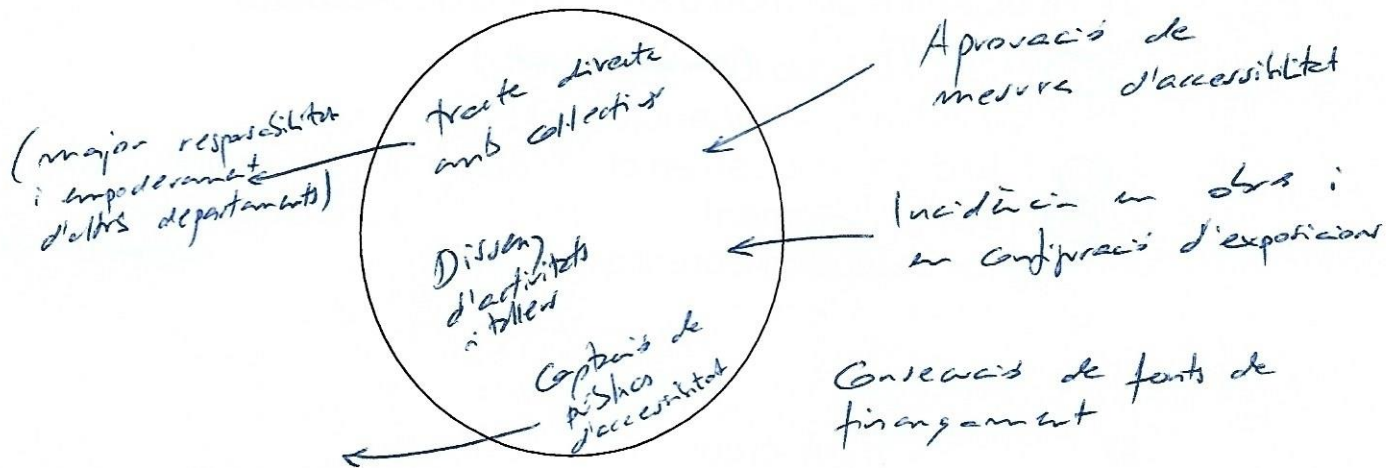 (major responsabilitat
i empoderament
d'altres departaments)
tracte directe
amb collectius
Disseny
d'activitats
i tallers
Captació de
públics
d'accessibilitat
Aprovació de
mesures d'accessibilitat
Incidència en obres i
en configuració d'exposicions
Consecució de fonts de
finançament